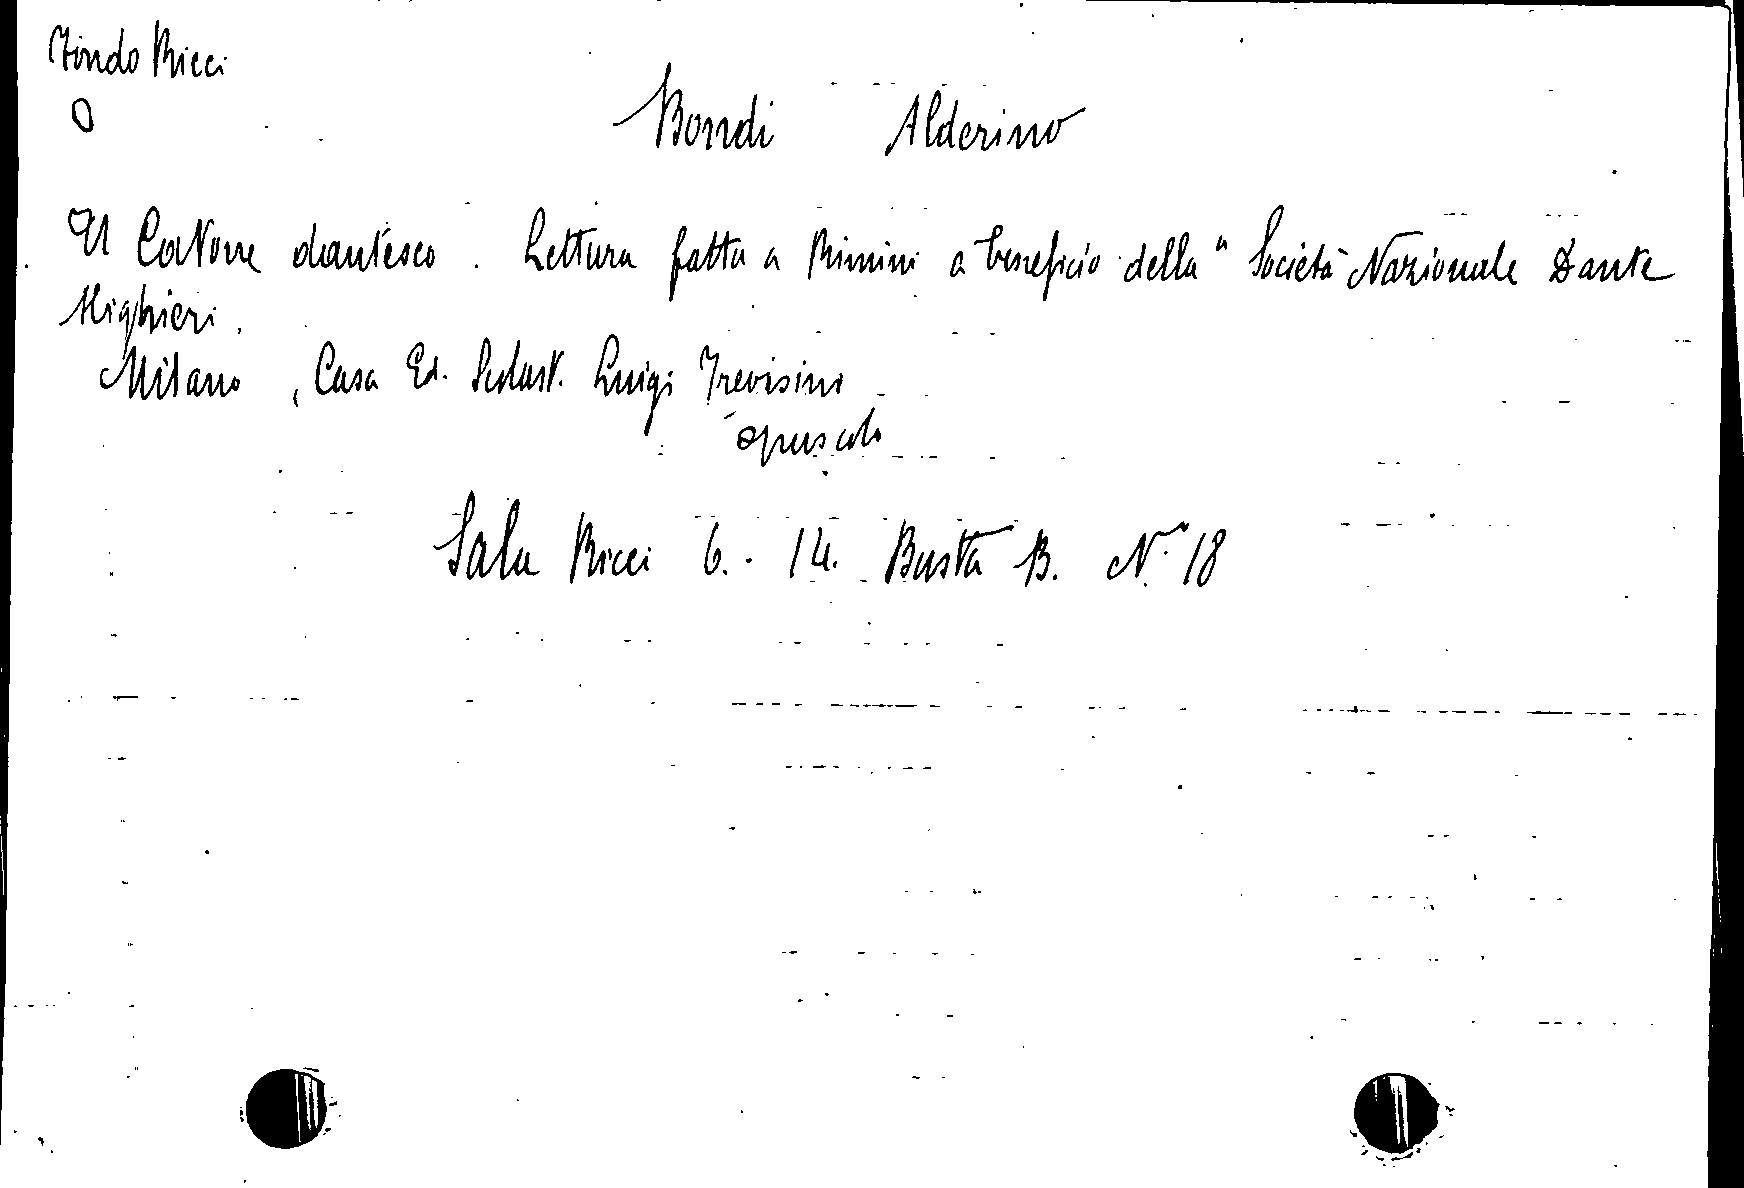 Fondo Ricci
O
Bondi Alderino
Il Catone dantesco. Lettura fatta a Rimini a beneficio della "Società Nazionale Dante
Alighieri.
Milano, Casa Ed. Scolast. Luigi Trevisini
opuscolo
Sala Ricci 6. - 14. Busta B. N.° 18